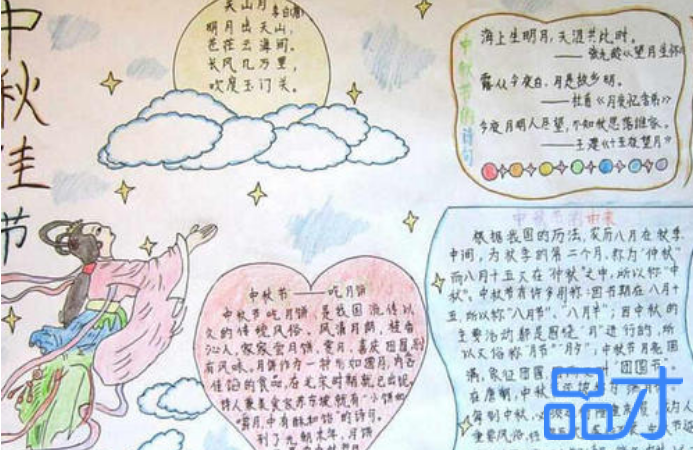 中秋佳节
关山月
李白(唐)
明月出天山,
苍茫云海间。
长风几万里,
吹度玉门关。
中秋节的诗句
海上生明月,天涯共此时。
——张九龄《望月怀
露从今夜白,月是故乡明。
——杜甫《月夜忆舍弟》
今夜月明人尽望,不知秋思落谁家。
——王建《十五夜望月》
中秋节的由来
根据我国的历法,农历八月在秋季
中间,为秋季的第二个月,称为“仲秋”
而八月十五又在“仲秋”之中,所以称“中
秋”。中秋节有许多别称:因节期在八月十
五,所以称“八月节”、“八月半”;因中秋的
主要活动都是围绕“月”进行的,所
以又俗称“月节”“月夕”;中秋节月亮圆
满,象征团圆,
团圆节”
在唐朝,中秋
每到中秋,
重要风俗,
中秋节——吃月饼
中秋节吃月饼,是我国流传以
久的传统风俗。风清月朗,桂香
沁人,家家尝月饼,赏月,喜庆团圆,别
有风味。月饼作为一种形如圆月,内含
佳馅的食品,在北宋时期就已出现。
诗人兼美食家苏东坡就有“小饼如
嚼月,中有酥和饴”的诗句。
到了元朝末年,月饼
品才